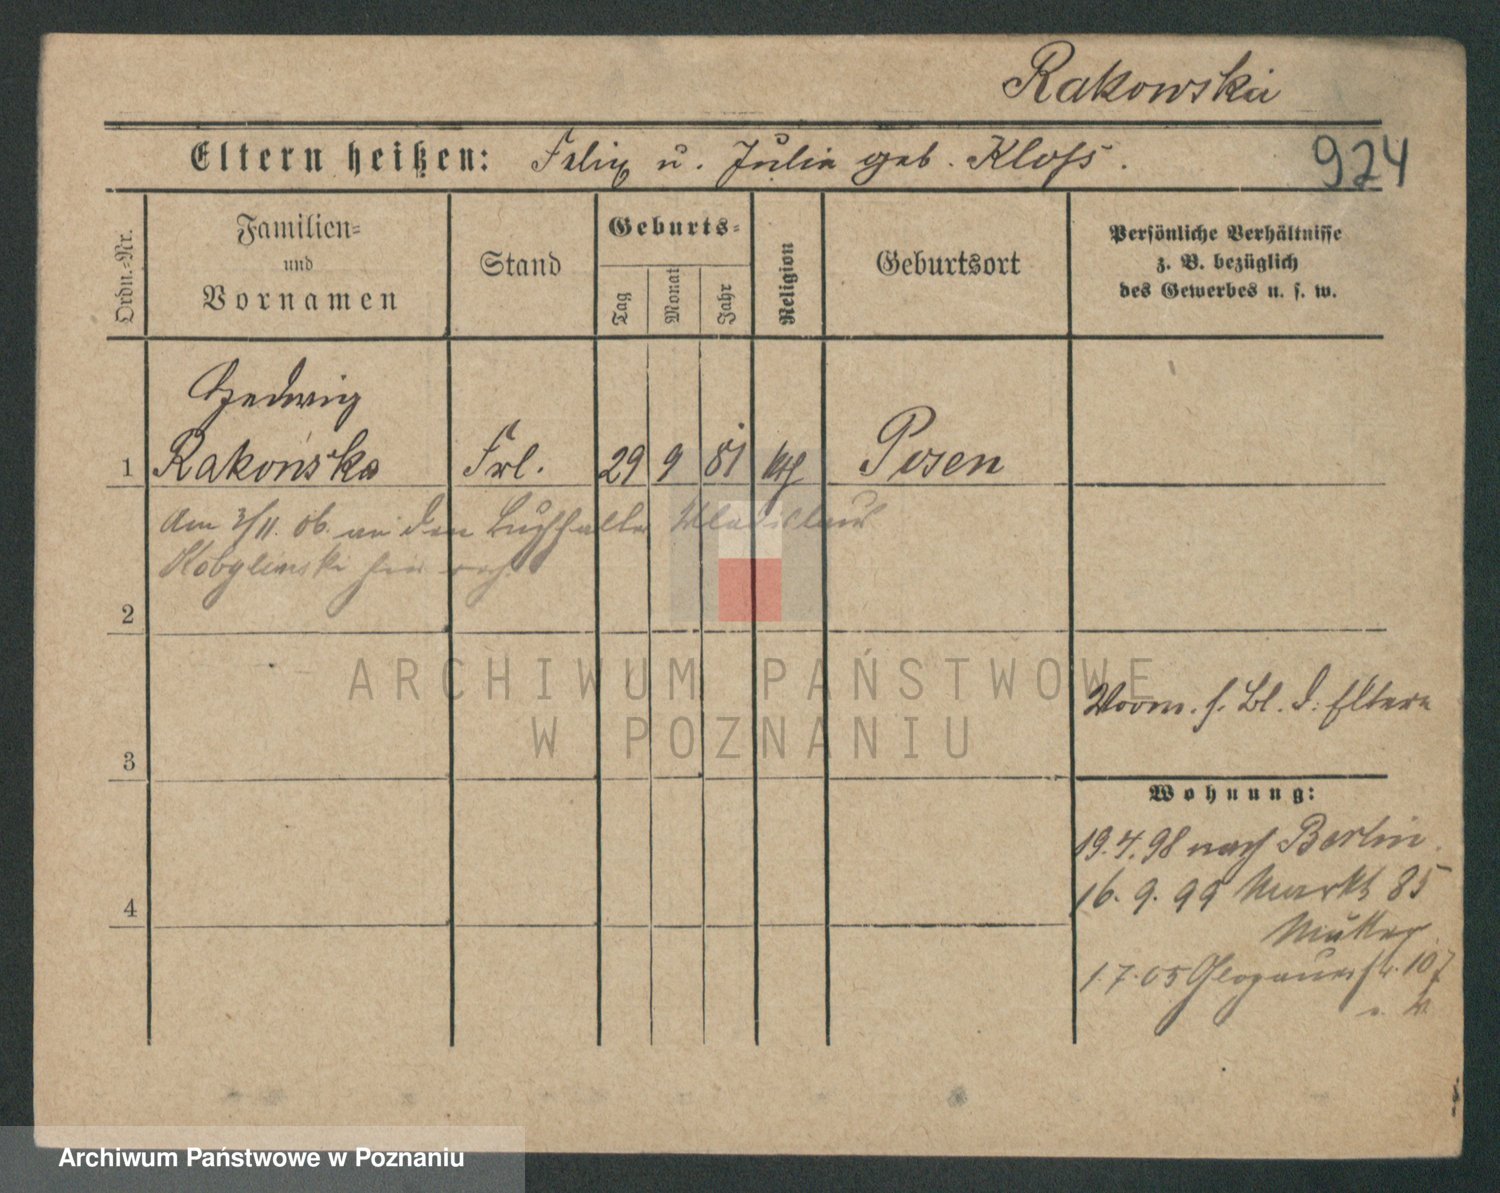 Rakowska
Eltern heißen: Felix u. Julia geb. Kloss.
924
Ordn.-Nr.
Familien-
und
Vornamen
Stand
Geburts-
Tag
Monat
Jahr
Religion
Geburtsort
Persönliche Verhältnisse
z. B. bezüglich
des Gewerbes u. s. w.
Hedwig
1 Rakowska Frl. 29 9 81 kth Posen
Am 3/11. 06. an den Buchhalter Wladislaus
Kobylinski hier verh.
2
ARCHIWUM PAŃSTWOWE
W POZNANIU
Vorm. s. Bl. d. Eltern
3
Wohnung:
19.4.98 nach Berlin.
16.9.99 Markt 85
Mutter
4
1.7.05 Glogauerstr. 107
Archiwum Państwowe w Poznaniu